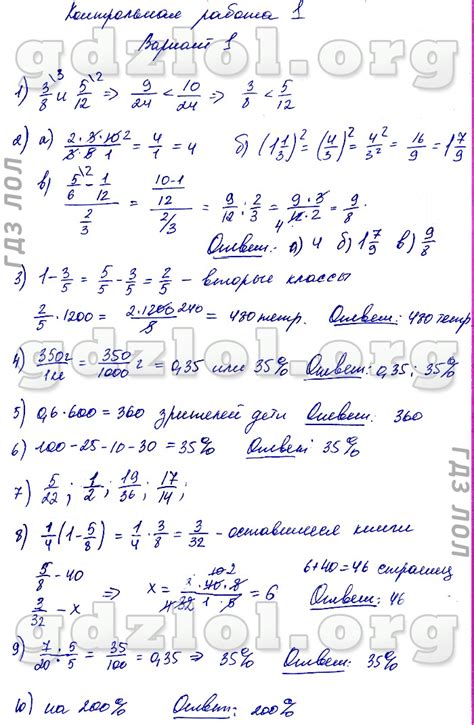 Контрольная работа 1
Вариант 1
gdzlol.org
1) 3/8 \3 и 5/12 \2 => 9/24 < 10/24 => 3/8 < 5/12
2) а) 2·3·10 2/3·5 1 = 4/1 = 4 б) (1 1/3)² = (4/3)² = 4²/3² = 16/9 = 1 7/9
в) (5/6 \2 - 1/12)/(2/3) = ((10-1)/12)/(2/3) = 9/12 : 2/3 = 9·3/4 12·2 = 9/8.
Ответ: а) 4 б) 1 7/9 в) 9/8
ГДЗ ЛОЛ
3) 1 - 3/5 = 5/5 - 3/5 = 2/5 - вторые классы
2/5 · 1200 = 2·1200 240/5 = 480 тетр. Ответ: 480 тетр
gdzlol.org
4) 350г/1кг = 350/1000 г = 0,35 или 35% Ответ: 0,35; 35%
5) 0,6·600 = 360 зрителей дети Ответ: 360
6) 100-25-10-30 = 35% Ответ: 35%
7) 5/22; 1/2; 19/36; 17/14;
ГДЗ ЛОЛ
8) 1/4 (1 - 5/8) = 1/4 · 3/8 = 3/32 - оставшиеся книги
5/8 - 40
3/32 - x => x = = 6 6+40=46 страниц
Ответ: 46
gdzlol.org
9) 7·5/20·5 = 35/100 = 0,35 => 35% Ответ: 35%
10) на 200% Ответ: 200%